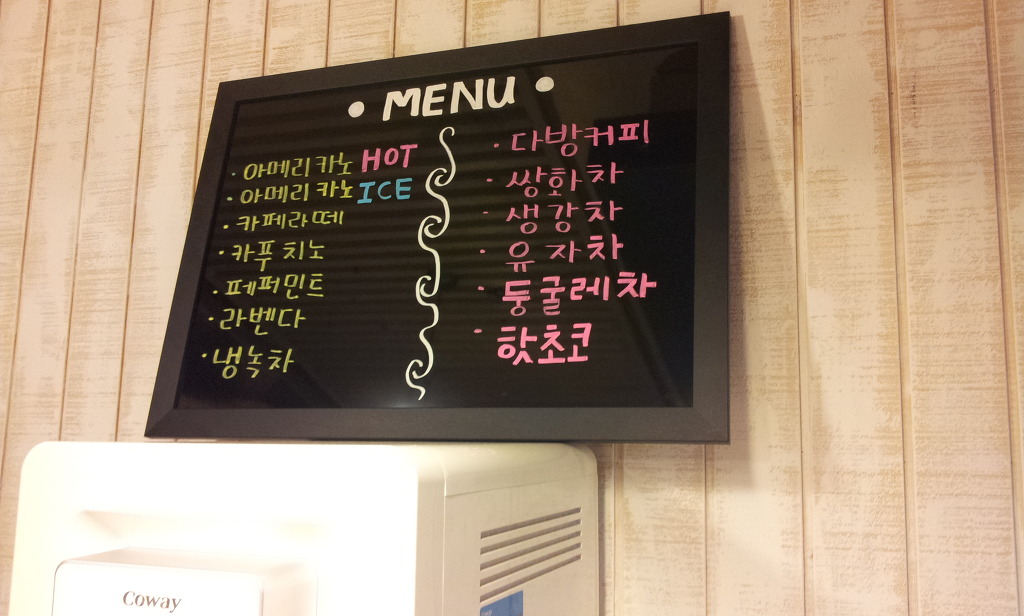 • MENU •
· 아메리카노 HOT
· 아메리카노 ICE
· 카페라떼
· 카푸치노
· 페퍼민트
· 라벤다
· 냉녹차
· 다방커피
· 쌍화차
· 생강차
· 유자차
· 둥굴레차
· 핫초코
Coway